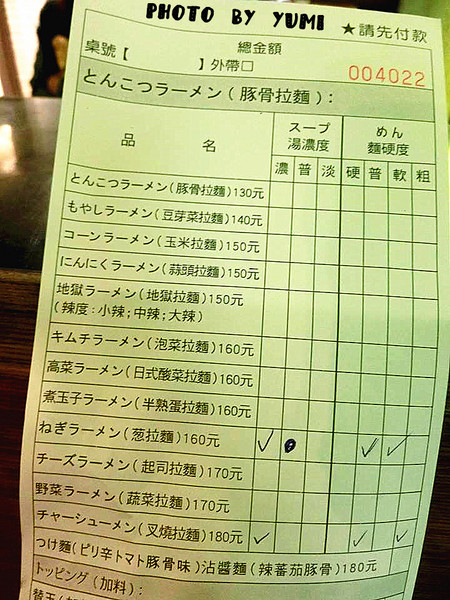 PHOTO BY YUMI
★請先付款
總金額
桌號【 】外帶□
004022
とんこつラーメン(豚骨拉麵):
品 名
スープ
湯濃度
めん
麵硬度
濃 普 淡 硬 普 軟 粗
とんこつラーメン(豚骨拉麵)130元
もやしラーメン(豆芽菜拉麵)140元
コーンラーメン(玉米拉麵)150元
にんにくラーメン(蒜頭拉麵)150元
地獄ラーメン(地獄拉麵)150元
(辣度:小辣;中辣;大辣)
キムチラーメン(泡菜拉麵)160元
高菜ラーメン(日式酸菜拉麵)160元
煮玉子ラーメン(半熟蛋拉麵)160元
ねぎラーメン(葱拉麵)160元
チーズラーメン(起司拉麵)170元
野菜ラーメン(蔬菜拉麵)170元
チャーシューメン(叉燒拉麵)180元
つけ麵(ピリ辛トマト豚骨味)沾醬麵(辣蕃茄豚骨)180元
トッピング(加料):
替玉